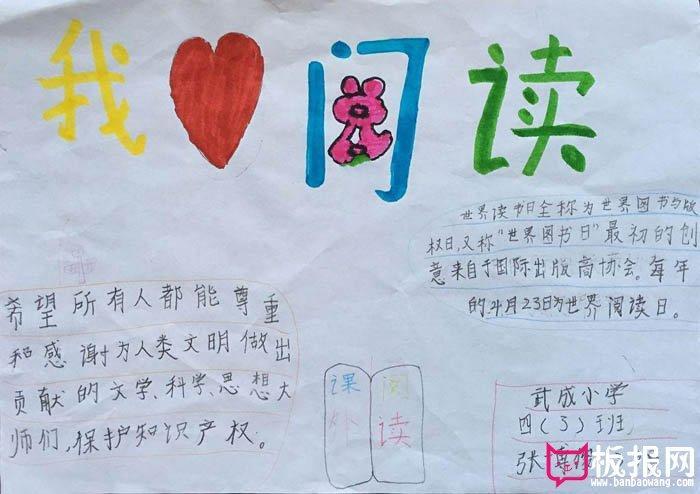 我 阅读
世界读书日全称为世界图书与版
权日,又称“世界图书日”最初的创
意来自于国际出版商协会。每年
的4月23日为世界阅读日。
希望所有人都能尊重
和感谢为人类文明做出
贡献的文学、科学、思想大
师们,保护知识产权。
课 阅
外 读
武成小学
四(3)班
张
板报网
www.banbaowang.com